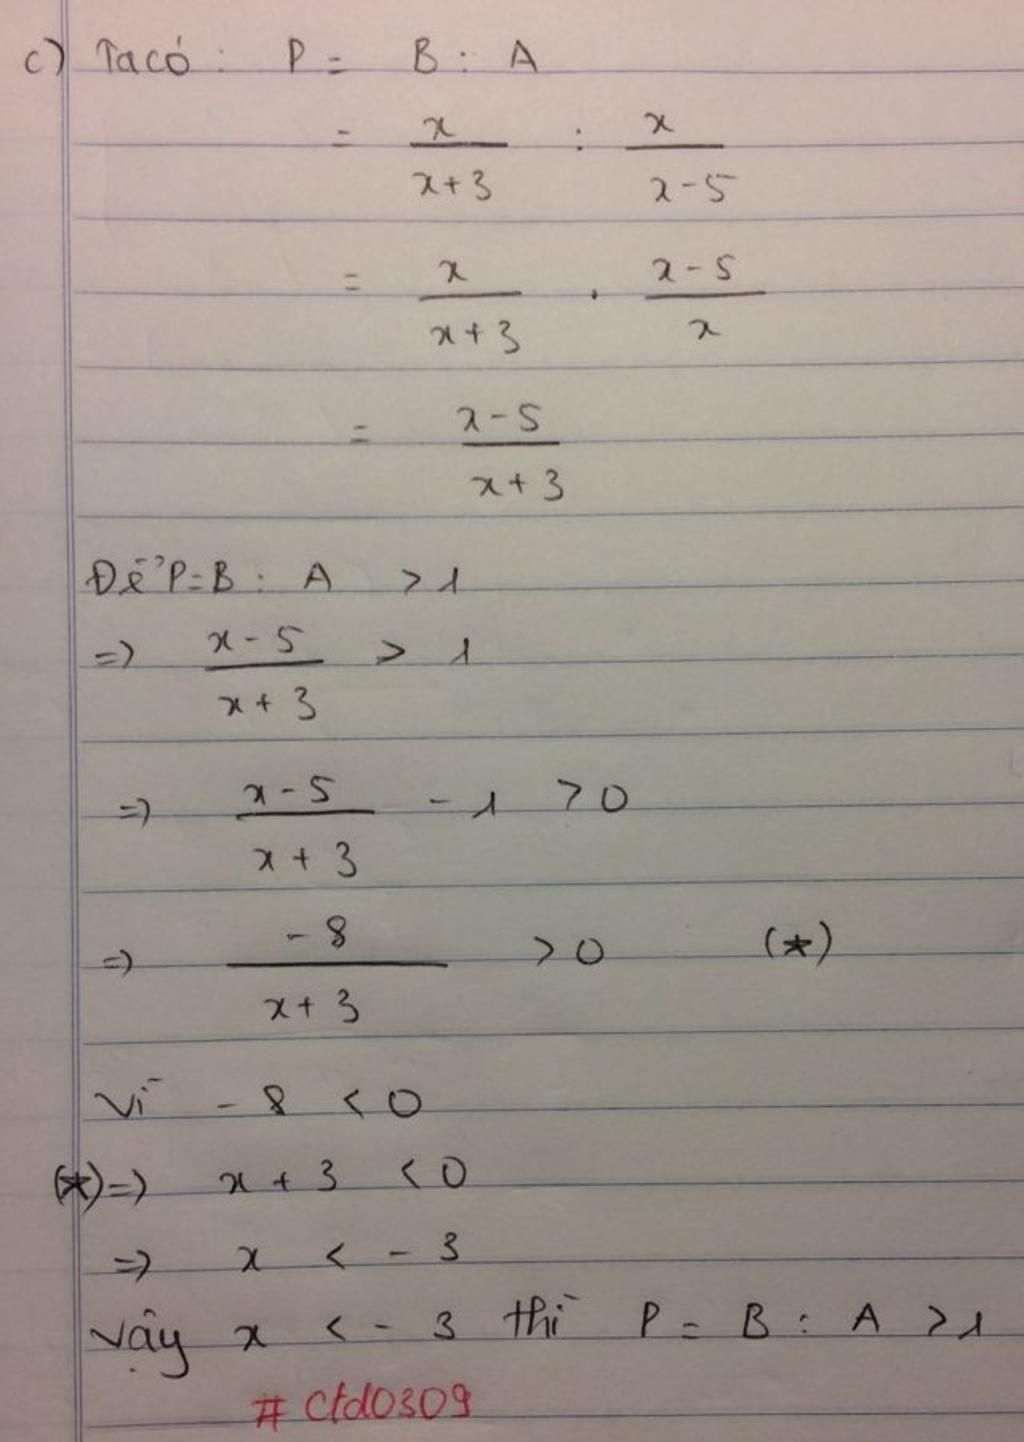 c) Ta có : P = B : A
= x/(x+3) : x/(x-5)
= x/(x+3) . (x-5)/x
= (x-5)/(x+3)
Để P=B : A > 1
=> (x-5)/(x+3) > 1
=> (x-5)/(x+3) - 1 > 0
=> -8/(x+3) > 0 (*)
Vì -8 < 0
(*) => x + 3 < 0
=> x < -3
Vậy x < -3 thì P = B : A > 1
# Ctd0309